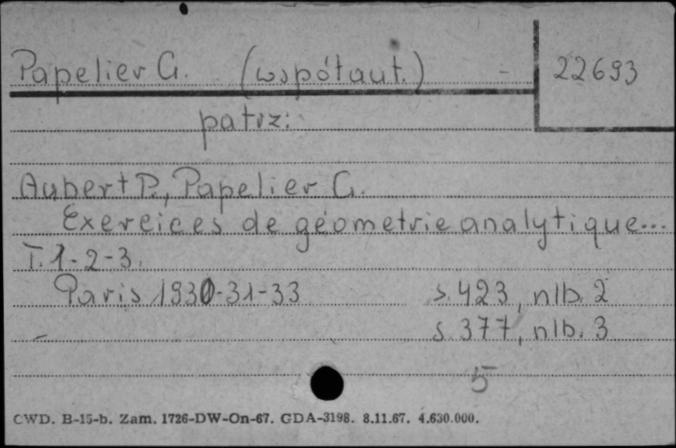 Papelier G. (współaut.) - 22693
patrz:
Aubert P., Papelier G.
Exercices de géometrie analytique...
T. 1-2-3.
Paris 1930-31-33 s. 423, nlb. 2
s. 377, nlb. 3
5
CWD. B-15-b. Zam. 1726-DW-On-67. GDA-3198. 8.11.67. 4.630.000.